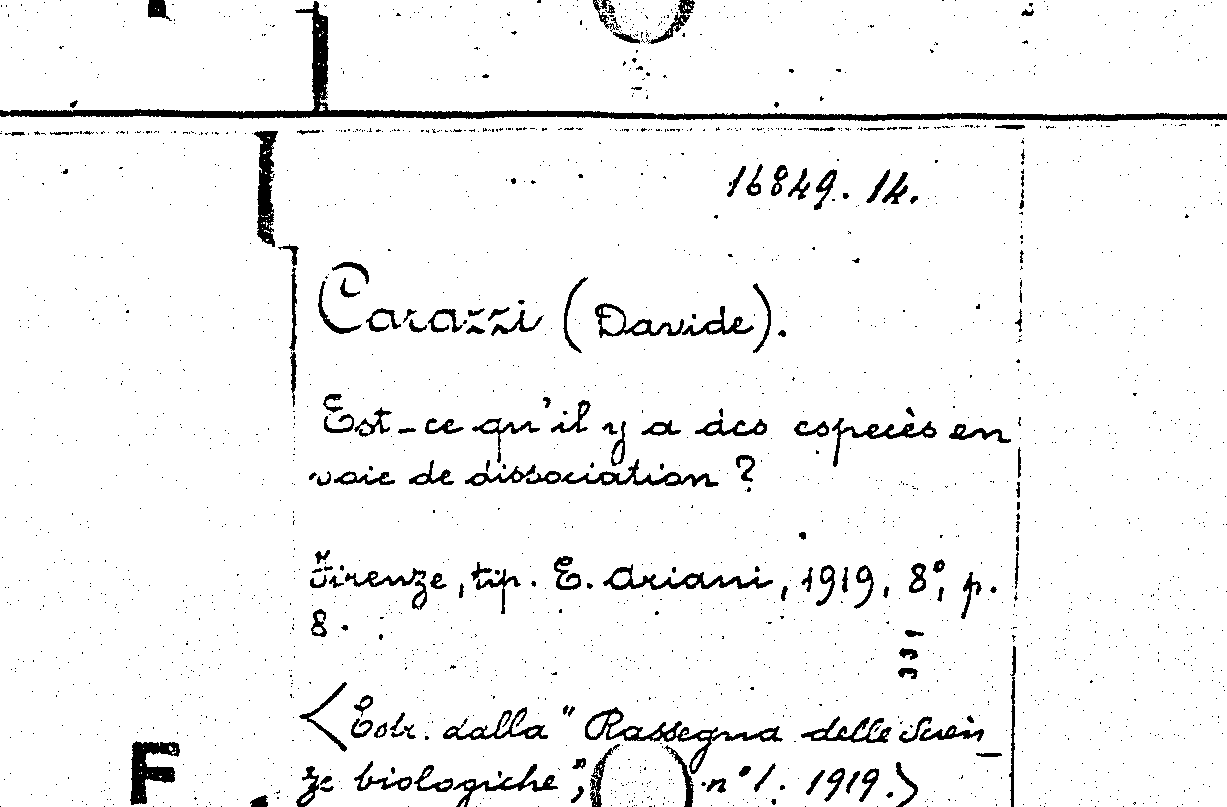 16849. 14.
Carazzi (Davide).
Est-ce qu'il y a des especès en
voie de dissociation ?
Firenze, tip. E. Ariani, 1919, 8°, p.
8.
<Estr. dalla "Rassegna delle Scien_
ze biologiche", n° 1. 1919.>
F